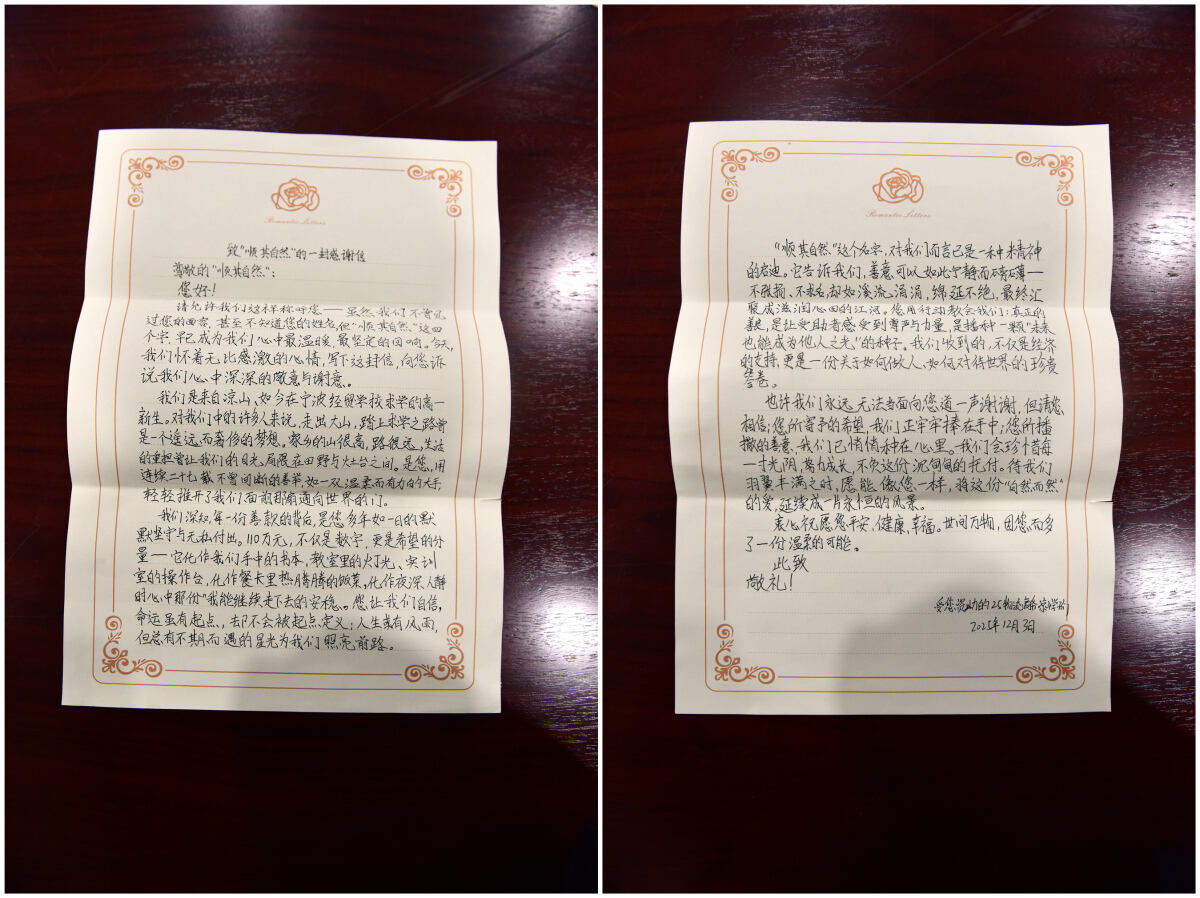 Romantic Letters
致“顺其自然”的一封感谢信
尊敬的“顺其自然”:
您好!
请允许我们这样称呼您——虽然我们不曾见
过您的面容,甚至不知道您的姓名,但“顺其自然”这四
个字,早已成为我们心中最温暖、最坚定的回响。今天,
我们怀着无比感激的心情,写下这封信,向您诉
说我们心中深深的敬意与谢意。
我们是来自凉山,如今在宁波经贸学校求学的高一
新生。对我们中的许多人来说,走出大山,踏上求学之路曾
是一个遥远而奢侈的梦想。家乡的山很高,路很远,生活
的重担曾让我们的目光局限在田野与灶台之间。是您,用
连续二十七载不曾间断的善举,如一双温柔而有力的大手,
轻轻推开了我们面前那扇通向世界的门。
我们深知,每一份善款的背后,是您多年如一日的默
默坚守与无私付出。110万元,不仅是数字,更是希望的分
量——它化作我们手中的书本,教室里的灯光、实训
室的操作台,化作餐卡里热腾腾的饭菜,化作夜深人静
时心中那份“我能继续走下去的安稳。您让我们自信,
命运虽有起点,却不会被起点定义;人生或有风雨,
但总有不期而遇的星光为我们照亮前路。
Romantic Letters
“顺其自然”这个名字,对我们而言已是一种精神
的启迪。它告诉我们,善意可以如此宁静而磅礴——
不张扬、不求名,却如溪流涓涓,绵延不绝,最终汇
聚成滋润心田的江河。您用行动教会我们:真正的
善良,是让受助者感受到尊严与力量,是播种一颗“未来
也能成为他人之光”的种子。我们收到的,不仅是经济
的支持,更是一份关于如何做人、如何对待世界的珍贵
答卷。
也许我们永远无法当面向您道一声谢谢,但请您
相信:您所寄予的希望,我们正牢牢捧在手中;您所播
撒的善意,我们已悄悄种在心里。我们会珍惜每
一寸光阴,努力成长,不负这份沉甸甸的托付。待我们
羽翼丰满之时,愿能像您一样,将这份“自然而然”
的爱,延续成一片永恒的风景。
衷心祝愿您平安、健康、幸福。世间万物,因您而多
了一份温柔的可能。
此致
敬礼!
受您资助的25物流
2025年12月3日